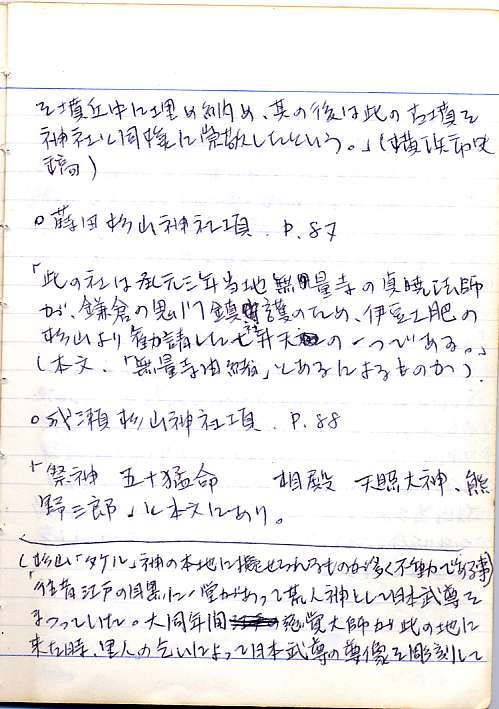 を墳丘中に埋め納め、其の後は此の古墳を
神社と同様に崇敬したという。」（横浜市史
稿）
○蒔田杉山神社項 P.87
「此の社は承元三年当地無量寺の貞暁法師
が、鎌倉の鬼門鎮護のため、伊豆土肥の
杉山より勧請した七弁天の一つである。」
（本文、「無量寺由緒」とあるによるものか）.
○成瀬杉山神社項 P.88
「祭神 五十猛命 相殿 天照大神、熊
野三郎」と本文にあり。
（杉山「タケル」神の本地に擬せられるものが多く不動である事）
「往昔江戸の目黒に一堂があって荒人神として日本武尊を
まつっていた。大同年間慈覚大師が此の地に
来た時、里人の乞いによって日本武尊の尊像を彫刻して